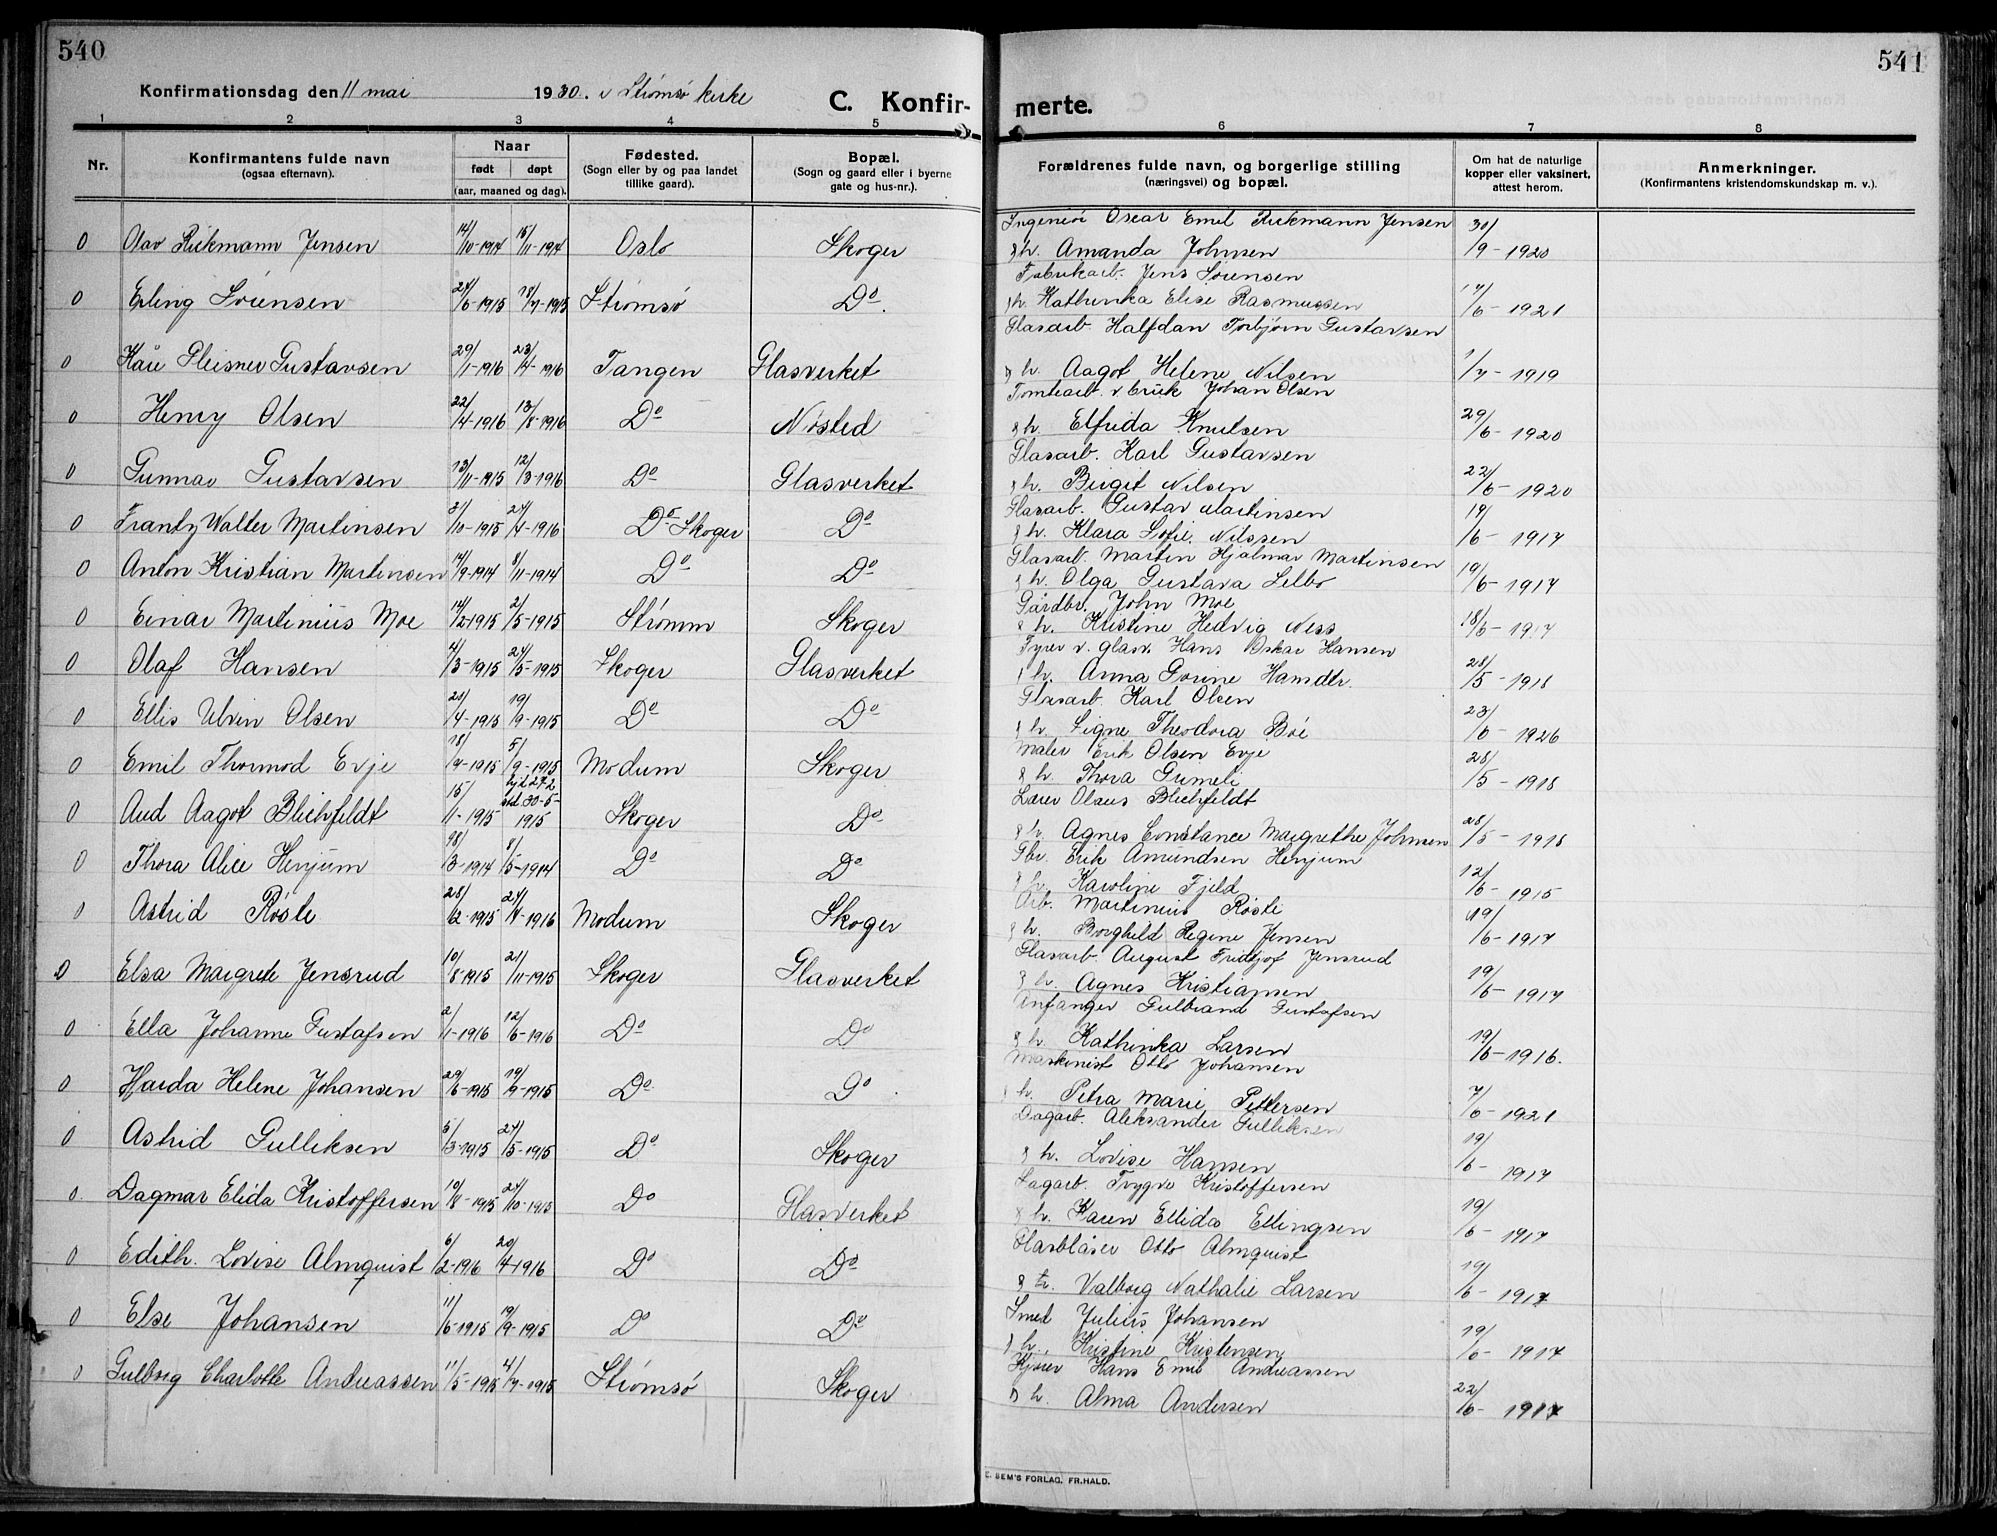 540
Konfirmationsdag den 11 mai 1930. i Strømsø kirke
C. Konfir-
1 2 3 4 5
Nr.
Konfirmantens fulde navn
(ogsaa efternavn).
Naar
født døpt
(aar, maaned og dag).
Fødested.
(Sogn eller by og paa landet
tillike gaard).
Bopæl.
(Sogn og gaard eller i byerne
gate og hus-nr.).
0 Olav Rickmann Jensen 14/10-1914 15/11-1914 Oslo Skoger
0 Erling Sørensen 27/6-1915 18/7-1915 Strømsø Do.
0 Kåre Gleisner Gustavsen 29/1-1916 23/4-1916 Tangen Glasverket
0 Henry Olsen 22/4-1916 13/8-1916 Do Nøsted
0 Gunnar Gustavsen 13/11-1915 12/3-1916 Do Glasverket
0 Frantz Walter Martinsen 3/10-1915 24/4-1916 Do Skoger Do
0 Anton Kristian Martinsen 14/9-1914 8/11-1914 Do Do
0 Einar Martinius Moe 14/2-1915 2/5-1915 Strømm Skoger
0 Olaf Hansen 4/3-1915 24/5-1915 Skoger Glasverket
0 Ellis Ulrin Olsen 21/4-1915 19/9-1915 Do Do
0 Emil Thormod Evje 18/4-1915 5/9-1915 Modum Skoger
0 Aud Aagot Blichfeldt 15/1-1915 hjd 27-2 std 30-5-1915 Skoger Do
0 Thora Alice Herjum 18/3-1914 8/5-1914 Do Do
0 Astrid Røste 28/2-1915 24/4-1916 Modum Skoger
0 Elsa Margrete Jensrud 10/8-1915 21/11-1915 Skoger Glasverket
0 Ella Johanne Gustafsen 2/1-1916 12/6-1916 Do Do
0 Harda Helene Johansen 29/6-1915 19/9-1915 Do Do
0 Astrid Gulliksen 5/3-1915 24/5-1915 Do Skoger
0. Dagmar Elida Kristoffersen 10/8-1915 24/10-1915 Do Glasverket
0 Edith. Lovise Almquist 6/2-1916 20/4-1916 Do Do
0 Else Johansen 11/6-1915 19/9-1915 Do Do
0 Gulborg Charlotte Andreassen 11/5-1915 4/7-1915 Strømsø Skoger
541
merte.
6 7 8
Forældrenes fulde navn, og borgerlige stilling
(næringsvei) og bopæl.
Om hat de naturlige
kopper eller vaksinert,
attest herom.
Anmerkninger.
(Konfirmantens kristendomskundskap m. v.).
Ingeniør Oscar Emil Rickmann Jensen
& h. Amanda Johnsen 30/9-1920
Fabrikarb. Jens Sørensen
& h. Kathinka Elise Rasmussen 17/6-1921
Glasarb. Halfdan Torbjørn Gustavsen
& h. Aagot Helene Nilsen 1/7-1919
Tomtearb. v. bruk Johan Olsen
& h. Elfrida Knutsen 29/6-1920
Glasarb. Karl Gustavsen
& h. Birgit Nilsen 22/6-1920
Glasarb. Gustav Martinsen
& h. Klara Sofie. Nilssen 19/6-1917
Glasarb. Martin Hjalmar Martinsen
& h. Olga Gustava Selbo 19/6-1917
Gårdbr. John Moe
& h. Kristine Hedvig Ness 18/6-1917
Fyrer v. glasv. Hans Oskar Hansen
& h. Anna Gorine Hamdtr. 28/5-1918
Glasarb. Karl Olsen
& h. Signe Theodora Bøe 23/6-1926
Maler Erik Olsen Evje
& h. Thora Gumeli 28/5-1918
Lærer Olaus Blichfeldt
& h. Agnes Constance Margrethe Johnsen 28/5-1918
Gbr. Erik Amundsen Herjum
& h. Karoline Fjeld 12/6-1915
Arb. Martinius Røste
& h. Borghild Regine Jensen 19/6-1917
Glasarb. August Fridtjof Jensrud
& h. Agnes Kristiansen 19/6-1917
Anfanger Gulbrand Gustafsen
& h. Kathinka Larsen 19/6-1916.
Maskinist Otto Johansen
& h. Petra Marie Pettersen 7/6-1921
Dagarb. Aleksander Gulliksen
& h. Lovise Hansen 19/6-1917
Sagarb. Trygve Kristoffersen
& h. Karen Ellida Ellingsen 19/6-1917
Glasblåser Otto Almquist
& h. Valborg Nathalie Larsen 19/6-1917
Smed Julius Johansen
& h. Kristine Kristensen 19/6-1917
Kjører Hans Emil Andreassen
& h. Alma Andersen 22/6-1917
SEM'S FORLAG. FR.HALD.